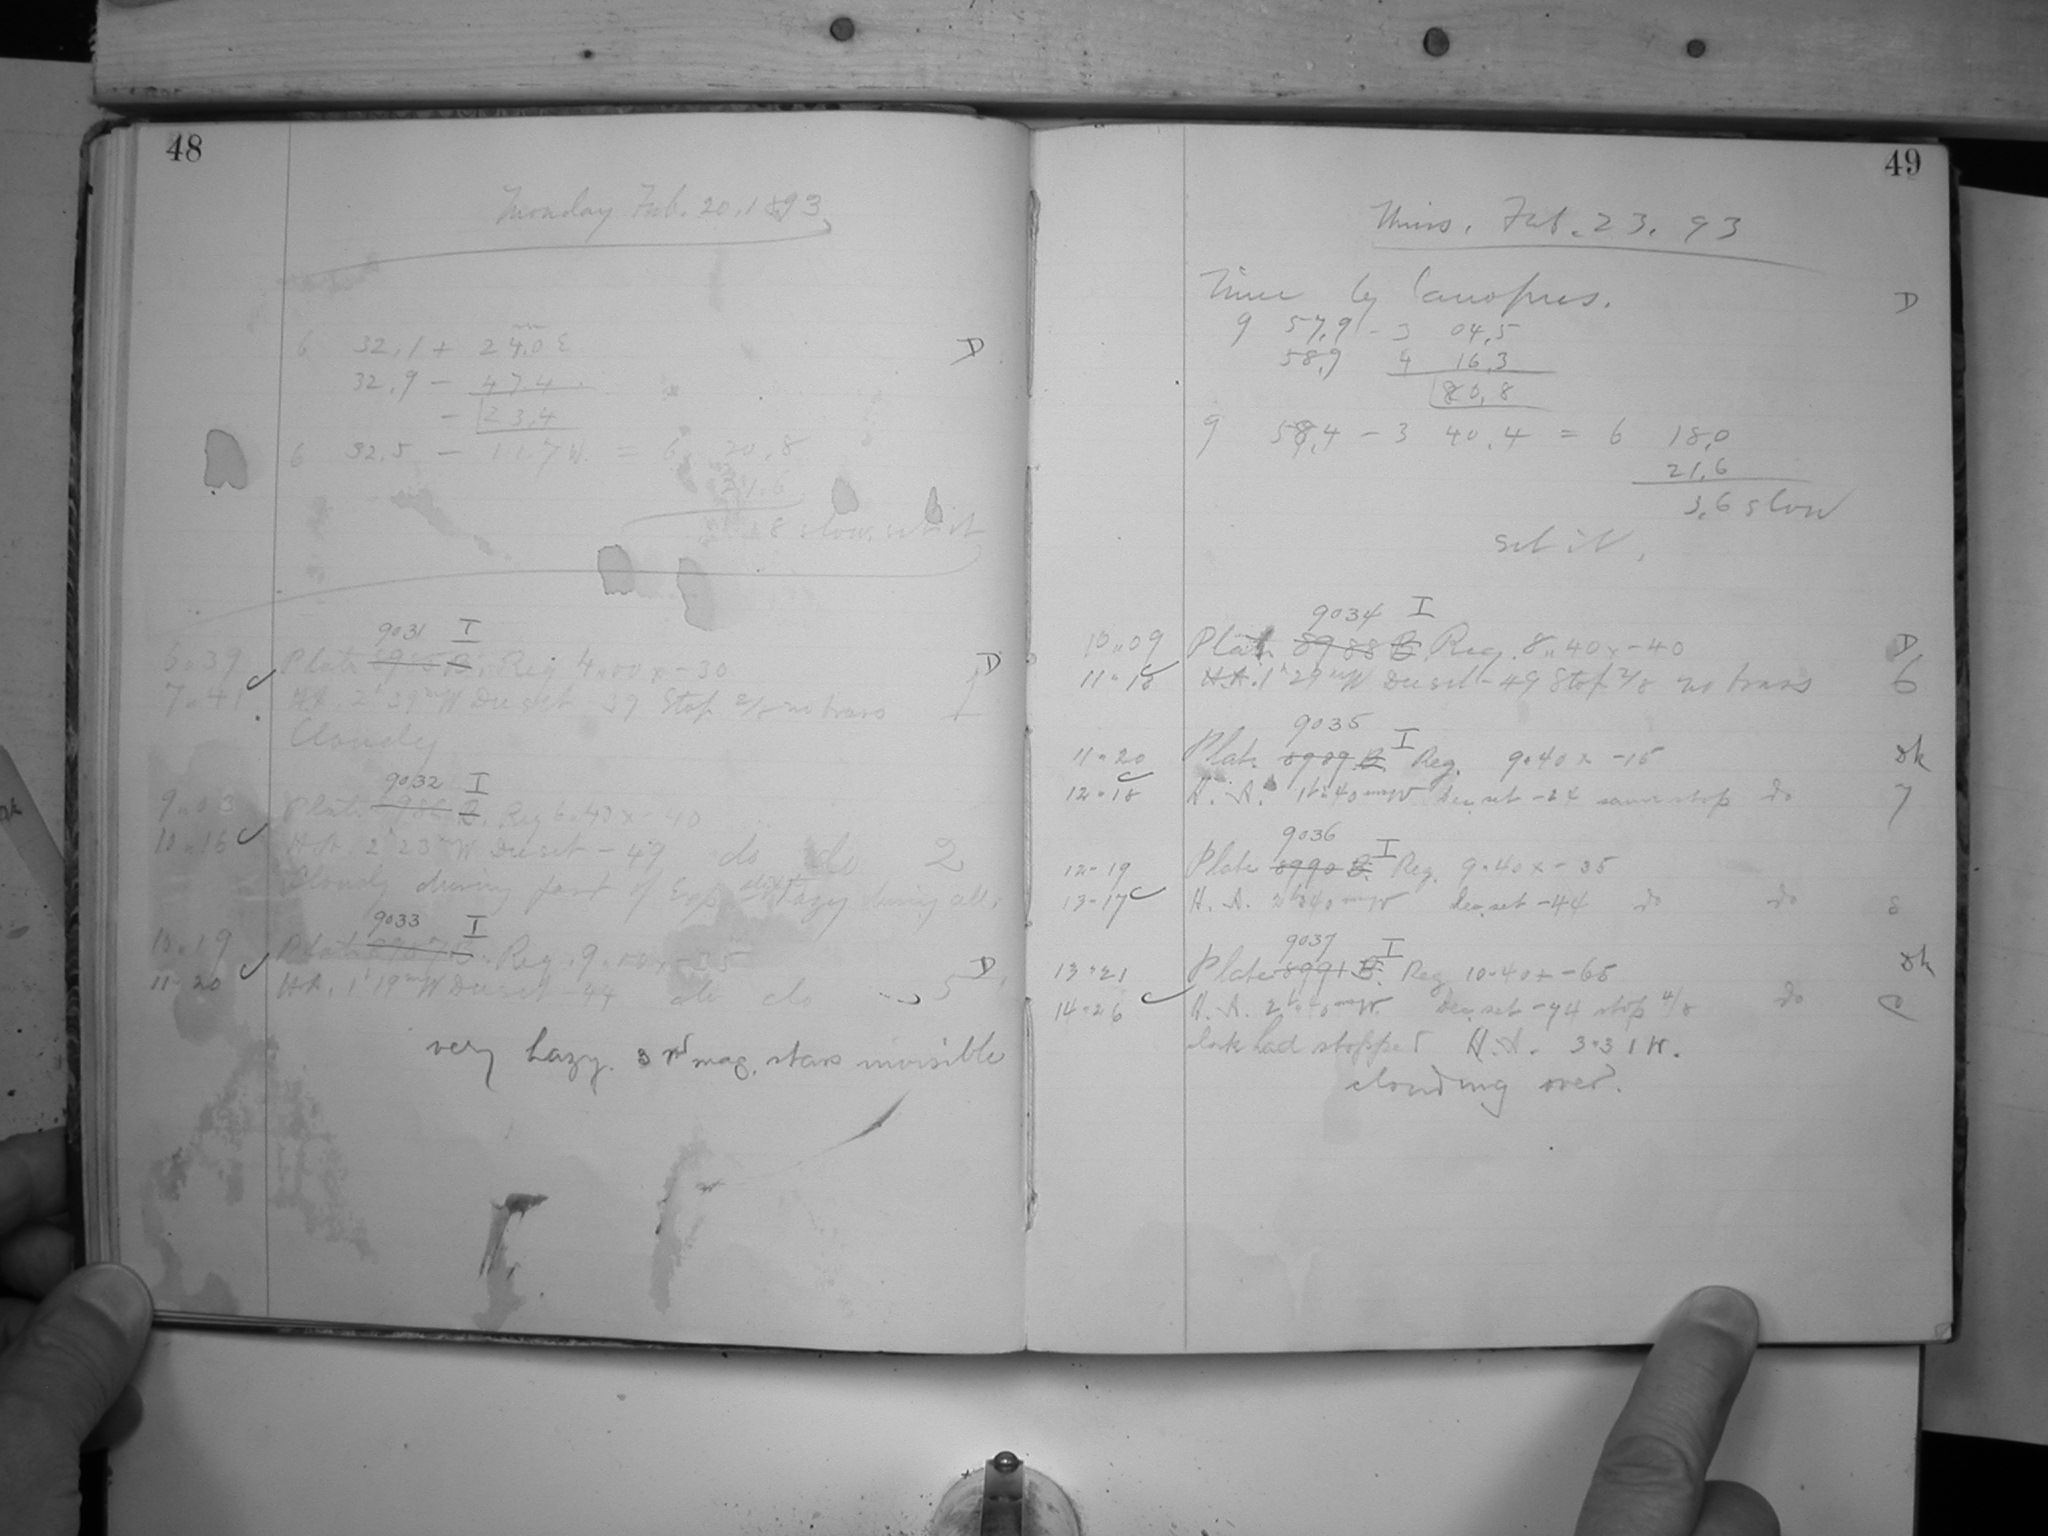 48
Monday Feb. 20. 1893
6 32.1 + 24.0 E D
32.9 - 47.4
- 23.4
6 32.5 - 11.7 W. = 6 20.8
21.6
8 slow, set it
9031 I
5.39 Plate Reg 4.00 x -30 D
7.41 H.A. 2h 39m W Dec set -39 Stop no trans 1
Cloudy
9032 I
9.03 Plate B. Reg 6.40 x -40
10.16 H.A. 2h 23m W Dec set -49 do do 2
Cloudy during part of Exp hazy during all.
9033 I
10.19 Plate Reg. 9.00 x D
11.20 H.A. 1h 19m W Dec set -44 do do 5
very hazy. 3rd mag. stars invisible
49
Thurs. Feb. 23. 93
Time by Canopus. D
9 57.9 - 3 04.5
58.9 4 16.3
80.8
9 58.4 - 3 40.4 = 6 18.0
21.6
3.6 slow
set it.
9034 I
10.09 Plate 8988 B. Reg. 8.40 x -40 D
11.18 H.A. 1h 29m W Dec set -49 Stop 2/8 no trans 6
9035 I
11.20 Plate 8989 B. Reg. 9.40 x -15 Dk
12.18 H. A. 1h 40m W Dec set -24 same stop do 7
9036 I
12.19 Plate 8990 B. Reg. 9.40 x -35
13.17 H. A. 2h 40m W Dec. set -44 do do 8
9037 I
13.21 Plate 8991 B. Reg 10.40 x -65 Dk
14.26 H. A. 2h 40m W Dec. set -74 stop 4/8 do
clock had stopped H.A. 3.31 W.
clouding over.